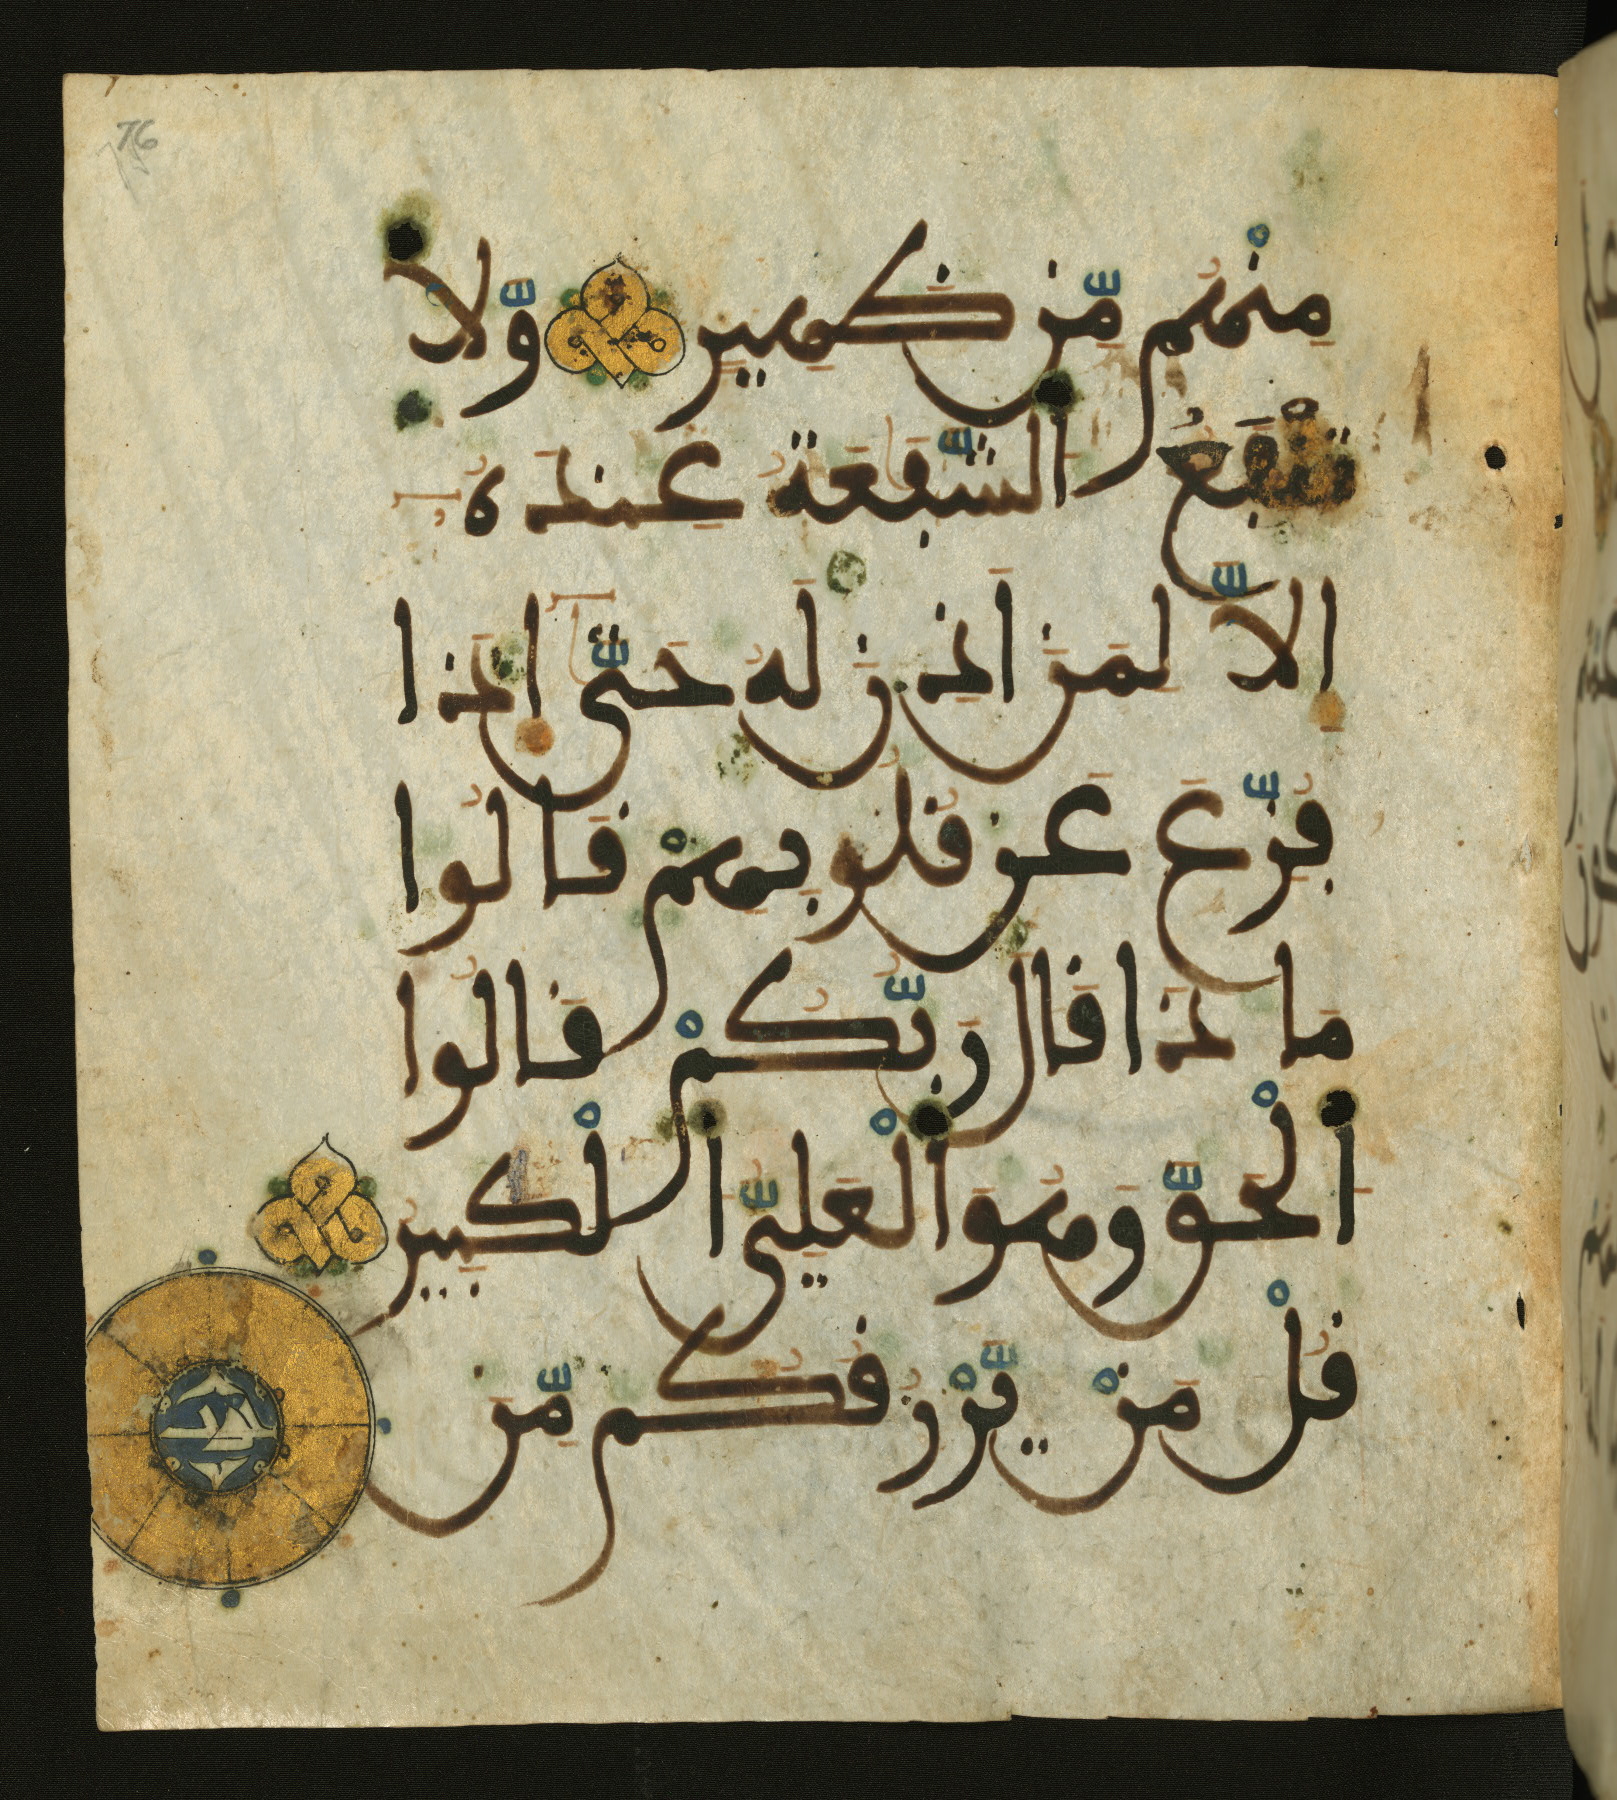 76
مِنْهُم مِّن ظَهِيرٍ وَّلَا
تَنفَعُ الشَّفَٰعَةُ عِندَهُ
إِلَّا لِمَنَ اَذِنَ لَهُ حَتَّىٰ إِذَا
فُزِّعَ عَن قُلُوبِهِمْ قَالُوا
مَاذَا قَالَ رَبُّكُمْ قَالُوا
اَلْحَقَّ وَهُوَ اَلْعَلِيُّ اَلْكَبِيرُ
قُلْ مَنْ يَّرْزُقُكُم مِّنَ